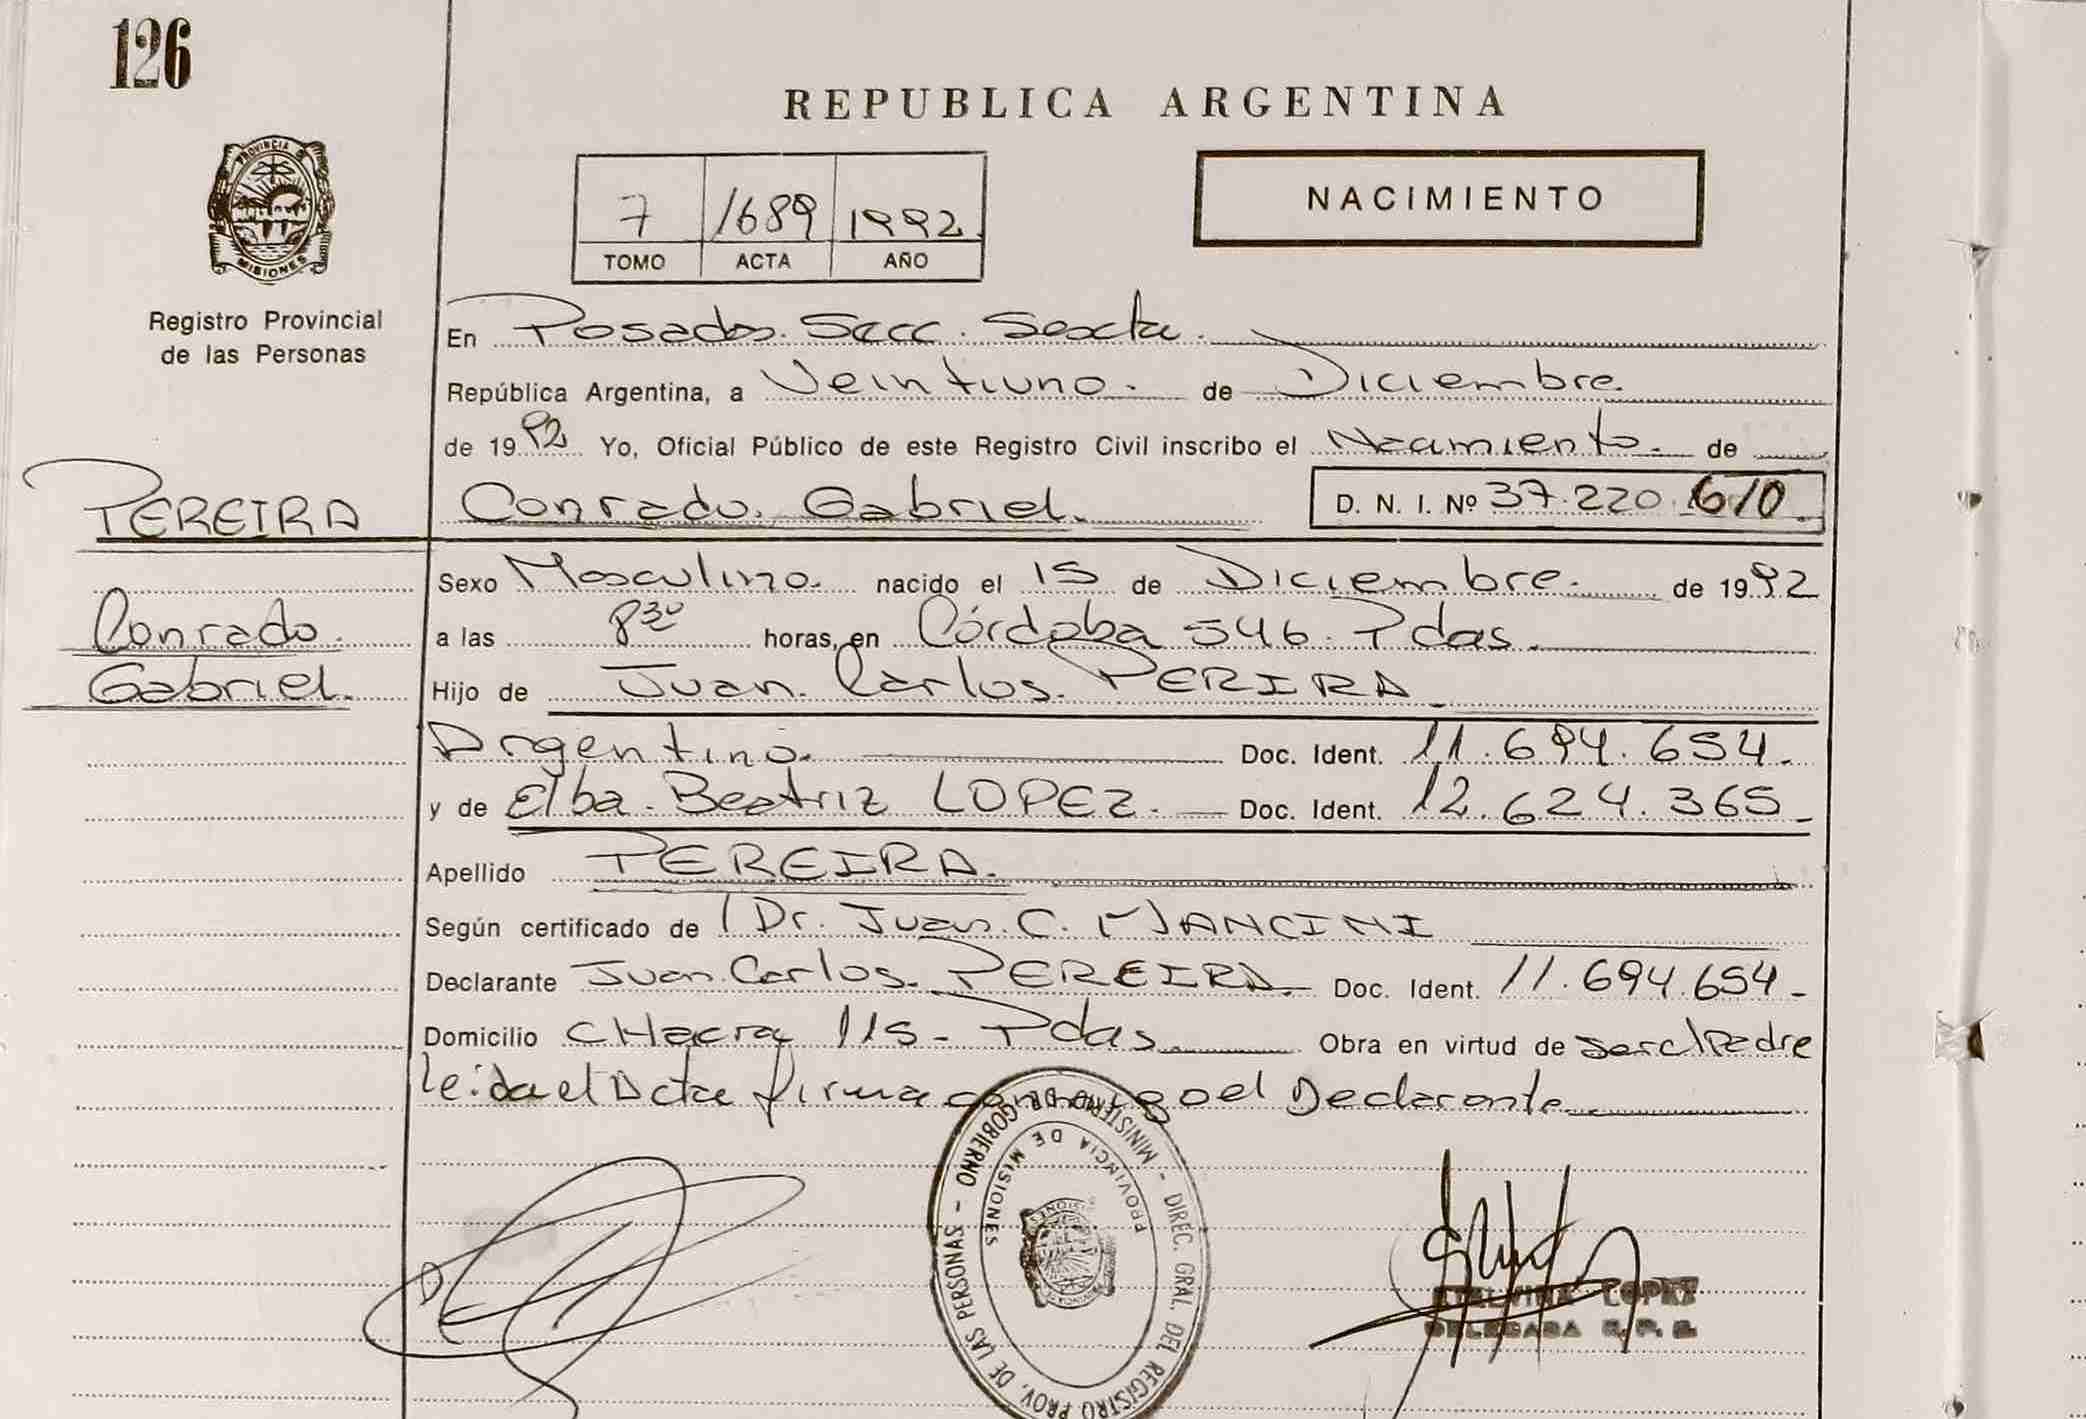 126
REPUBLICA ARGENTINA
PROVINCIA D
MISIONES
7 1689 1992
TOMO ACTA AÑO
NACIMIENTO
Registro Provincial
de las Personas
En Posadas. Secc. Sexta.
República Argentina, a Veintiuno. de Diciembre.
de 1992 Yo, Oficial Público de este Registro Civil inscribo el Nacimiento. de
PEREIRA Conrado. Gabriel. D. N. I. Nº 37.220.610
Sexo Masculino. nacido el 15 de Diciembre. de 1992
Conrado. a las 8 30 horas, en Córdoba 546. Pdas.
Gabriel. Hijo de Juan. Carlos. PERIRA
Argentino. Doc. Ident. 11.694.654.
y de Elba. Beatriz LOPEZ. Doc. Ident. 12.624.365
Apellido PEREIRA.
Según certificado de Dr. Juan. C. MANCINI
Declarante Juan. Carlos. PEREIRA. Doc. Ident. 11.694.654
Domicilio CHacra 115 - Pdas Obra en virtud de ser el Padre
Leida el Acta firma conmigo el Declarante.
MINISTERIO DE GOBIERNO - DIREC. GRAL. DEL REGISTRO PROV. DE LAS PERSONAS -
PROVINCIA DE MISIONES
LOPEZ
DELEGADA R. P. P.